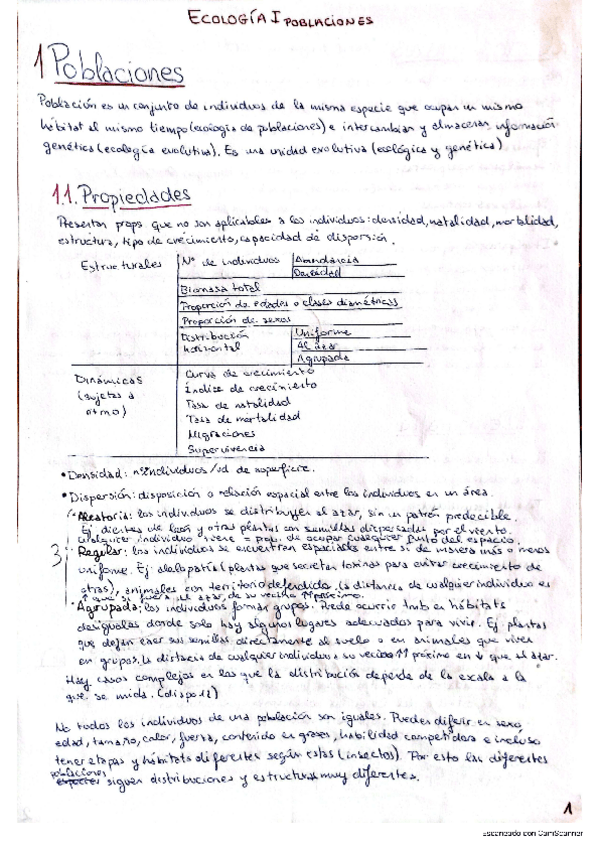 ECOLOGÍA I POBLACIONES
1 Poblaciones
Población es un conjunto de individuos de la misma especie que ocupan un mismo
hábitat al mismo tiempo (ecología de poblaciones) e intercambian y almacenan información
genética (ecología evolutiva). Es una unidad evolutiva (ecológica y genética)
1.1. Propiedades
Presentan props que no son aplicables a los individuos: densidad, natalidad, mortalidad,
estructura, tipo de crecimiento, capacidad de dispersión.
Estructurales Nº de individuos Abundancia
Densidad
Biomasa total
Proporción de edades o clases diamétricas
Proporción de sexos
Distribución horizontal Uniforme
Al azar
Agrupada
Dinámicas (sujetas a ritmo) Curva de crecimiento
Índice de crecimiento
Tasa de natalidad
Tasa de mortalidad
Migraciones
Supervivencia
• Densidad: nº individuos/ud de superficie.
• Dispersión: disposición o relación espacial entre los individuos en un área.
• Aleatoria: los individuos se distribuyen al azar, sin un patrón predecible.
Ej dientes de león y otras plantas con semillas dispersadas por el viento.
Cualquier individuo tiene = prob. de ocupar cualquier punto del espacio.
3 • Regular: los individuos se encuentran espaciados entre sí de manera más o menos
uniforme. Ej: alelopatía (plantas que secretan toxinas para evitar crecimiento de
otras), animales con territorio defendido. La distancia de cualquier individuo es
↑ que si fuera al azar, de su vecino + próximo.
• Agrupada: los individuos forman grupos. Puede ocurrir tmb en hábitats
desiguales donde solo hay algunos lugares adecuados para vivir. Ej plantas
que dejan caer sus semillas directamente al suelo o en animales que viven
en grupos. La distancia de cualquier individuo a su vecino próximo es ↓ que al azar.
Hay casos complejos en los que la distribución depende de la escala a la
que se mida. (diapo 12)
No todos los individuos de una población son iguales. Pueden diferir en sexo,
edad, tamaño, color, fuerza, contenido en grasas, habilidad competidora e incluso
tener etapas y hábitats diferentes según estas (insectos). Por esto las diferentes
poblaciones
especies siguen distribuciones y estructuras muy diferentes.
1
Escaneado con CamScanner